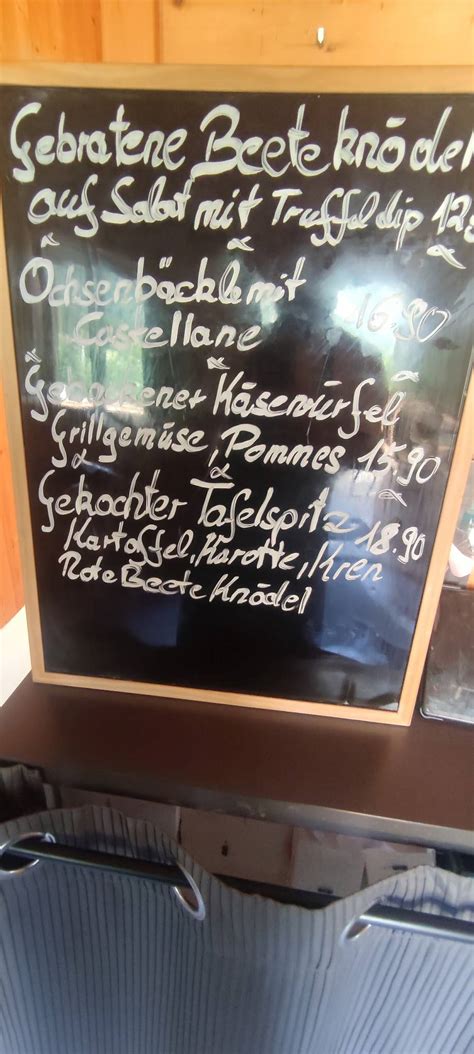 Gebratene Beeteknödel
auf Salat mit Truffeldip 12.
Ochsenbäckle mit
Castellane 16.90
Gebackener Käsewürfel
Grillgemüse, Pommes 15.90
Gekochter Tafelspitz
Kartoffel, Karotte, Kren 18.90
Rote Beete Knödel